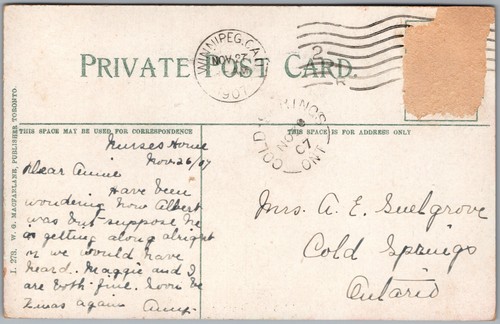 PRIVATE POST CARD.
WINNIPEG, CAN
NOV 27
1907
2
COLD SPRINGS
NO
07
ONT
THIS SPACE MAY BE USED FOR CORRESPONDENCE
THIS SPACE IS FOR ADDRESS ONLY
L. 278. W. G. MACFARLANE, PUBLISHER TORONTO.
Nurses Home
Nov. 26/07
Dear Annie
Have been
wondering how Albert
was but suppose he
is getting along alright
or we would have
heard. Maggie and I
are both fine. Soon be
Xmas again Amy.
Mrs. A. E. Snelgrove
Cold Springs
Ontario